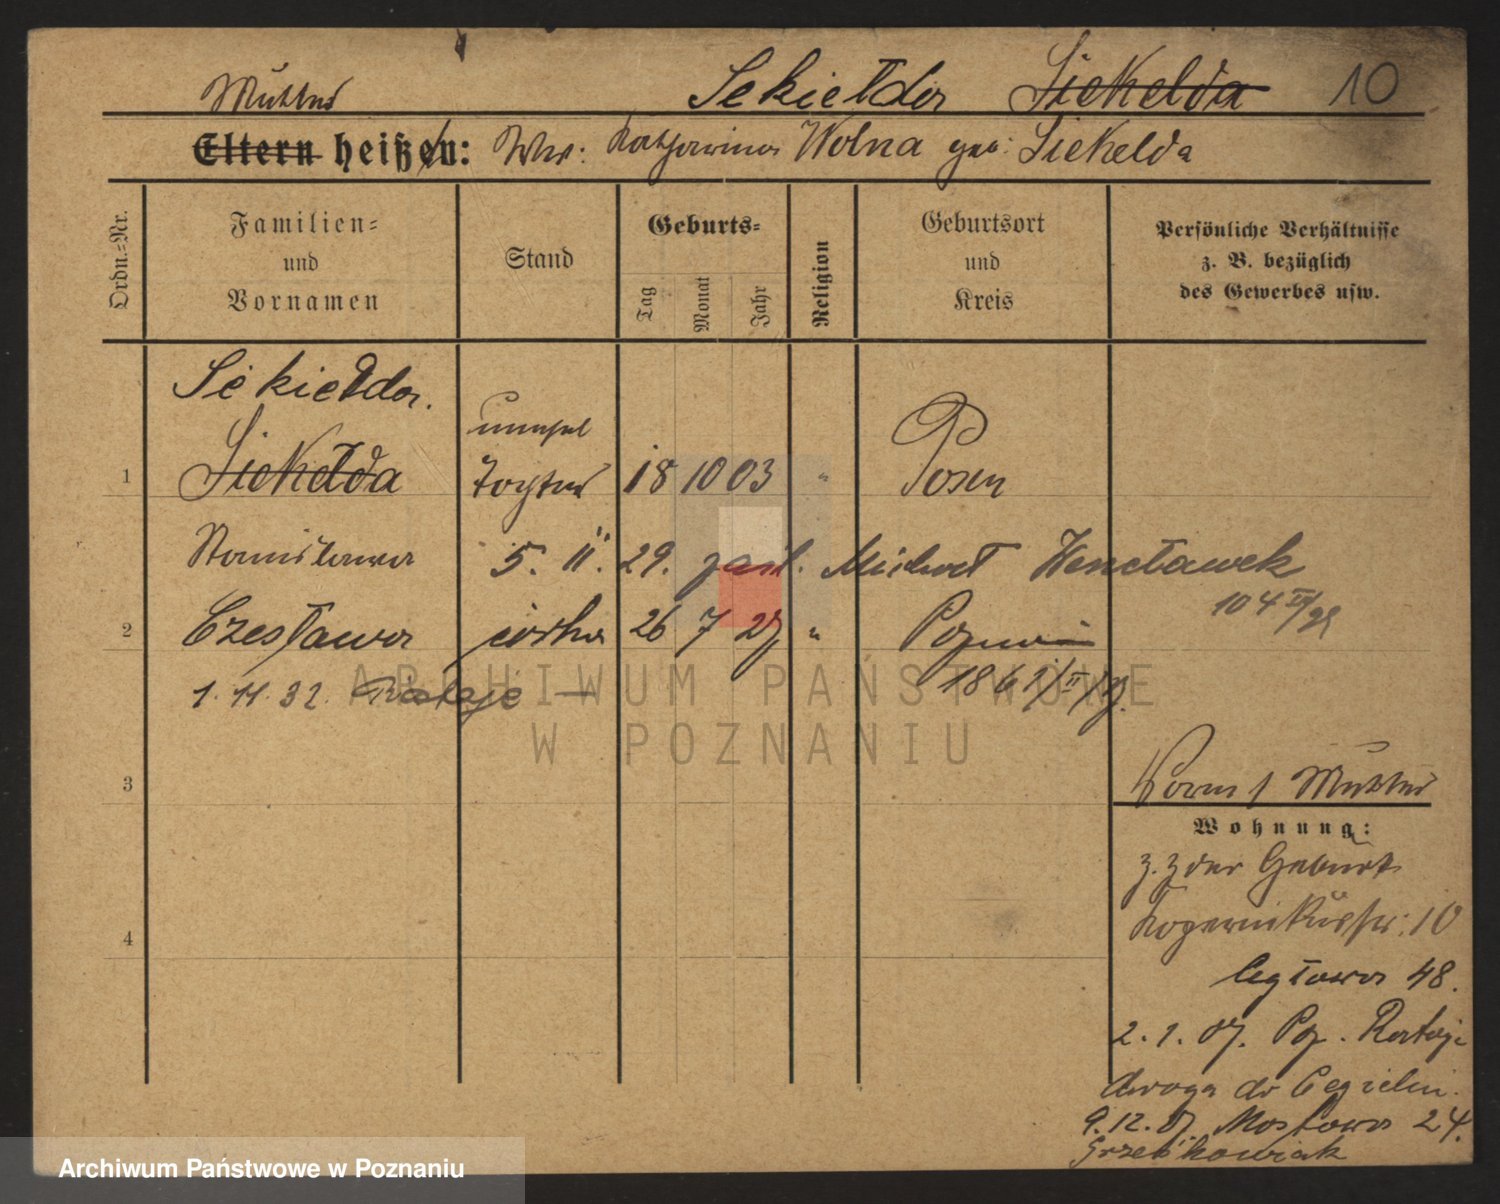 Mutter Sekiełda Siekelda 10
Eltern heißen: Ww: Katharina Wolna geb: Siekelda
Ordn.-Nr.
Familien-
und
Vornamen
Stand
Geburts-
Tag
Monat
Jahr
Religion
Geburtsort
und
Kreis
Persönliche Verhältnisse
z. B. bezüglich
des Gewerbes usw.
Sekiełda
unehel
1 Siekełda Tochter 18 10 03 " Posen
Stanisława 5. II. 29. zaśl. Michał Wencławek
104 II/29
2 Czesława córka 26 7 27 "
1. 11. 32. Rataje —
3
Mutter
Wohnung:
z. Z der Geburt
Kopernikusstr. 10
4
Cegłowa 48.
2. 1. 07. Rataje
droga do Cegielni.
9. 12. Mostowa 24.
Grześkowiak
ARCHIWUM PAŃSTWOWE
W POZNANIU
Archiwum Państwowe w Poznaniu